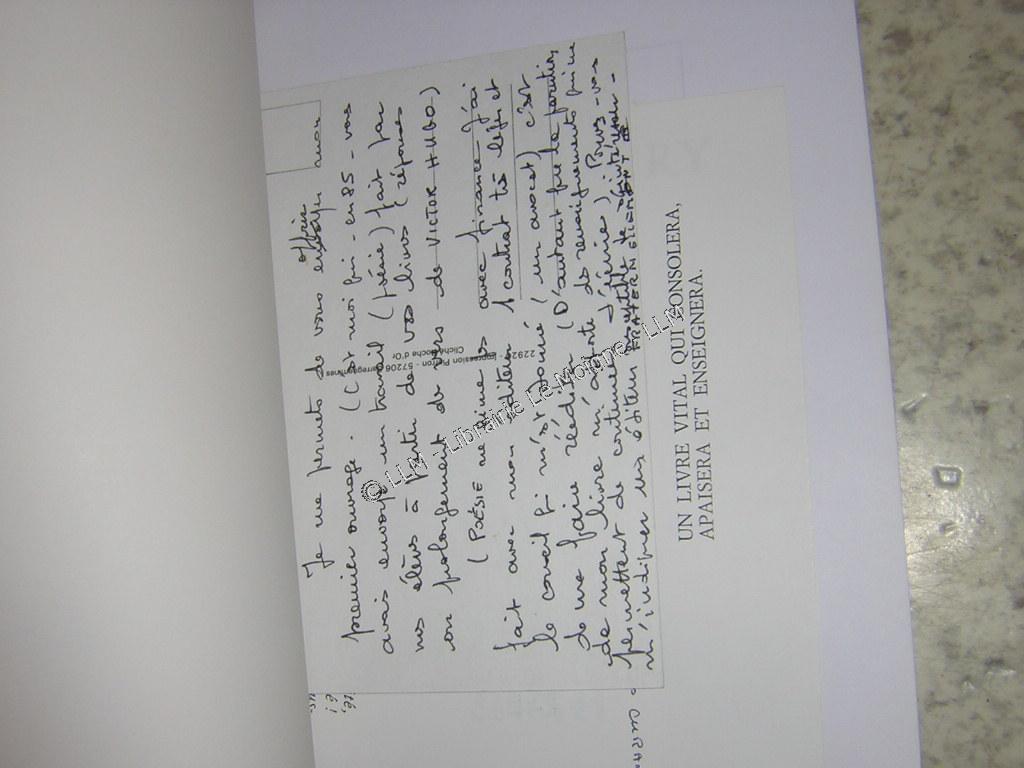 Je me permets de vous offrir mon
premier ouvrage. (C'est moi qui - en 85 - vous
avais envoyé un travail (poésie) fait par
mes élèves à partir de vos livres (réponses
ou prolongement de vers de VICTOR HUGO)
(POÉSIE ne rime pas avec finance - J'ai
fait avec mon éditeur 1 contrat très léger et
le conseil qui m'est donné (un avocat) c'est
de me faire rééditer (D'autant que la parution
de mon livre m'a apporté de
permettent de continuer d'écrire) Pouvez-vous
m'indiquer un éditeur
FRATERNELLEMENT
UN LIVRE VITAL QUI CONSOLERA,
APAISERA ET ENSEIGNERA.
Impression Pierron - 57206 Sarreguemines
Cliché Roche d'Or
© LLM - Librairie Le Moigne - LLM